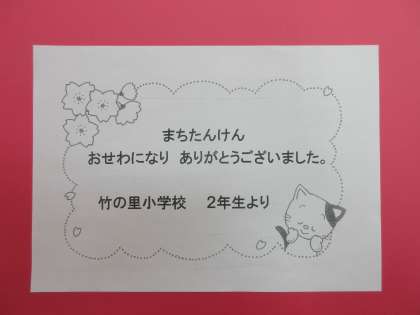 まちたんけん
おせわになり　ありがとうございました。
竹の里小学校　２年生より